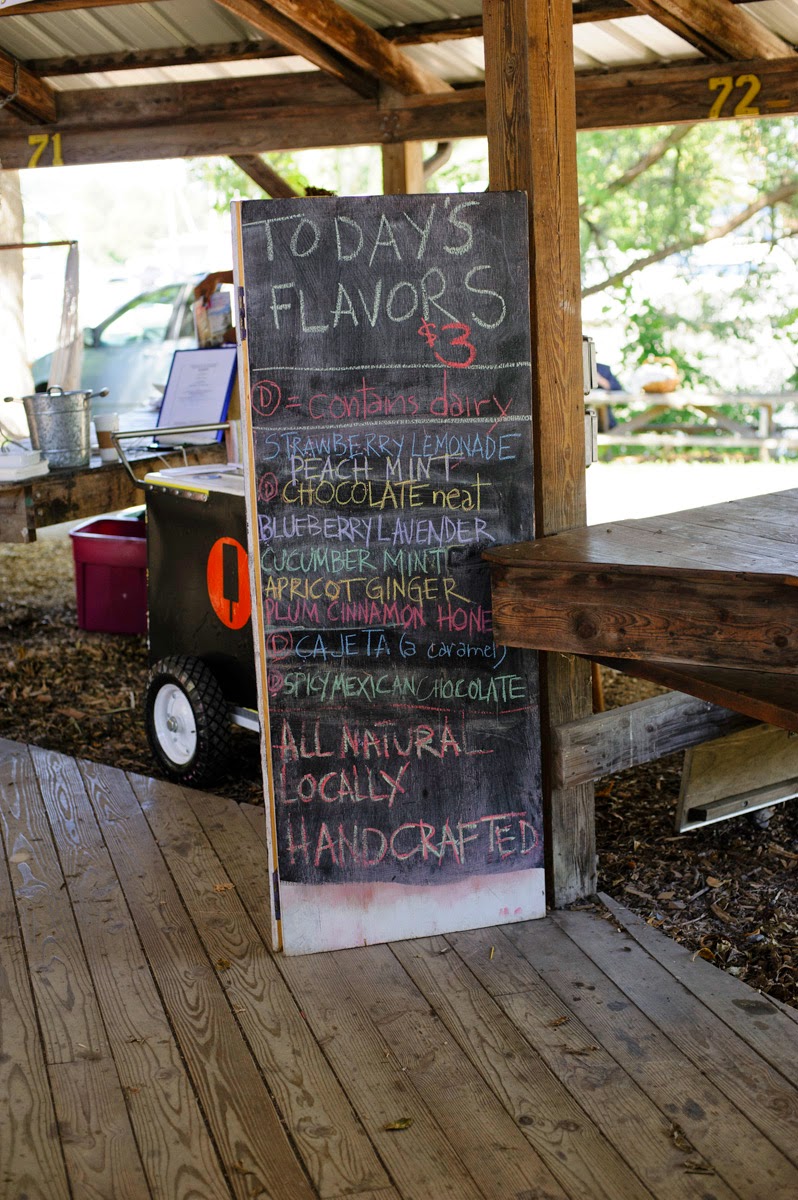 71
72
TODAY'S
FLAVORS
$3
Ⓓ = contains dairy
STRAWBERRY LEMONADE
PEACH MINT
Ⓓ CHOCOLATE neat
BLUEBERRY LAVENDER
CUCUMBER MINT
APRICOT GINGER
PLUM CINNAMON HONE
Ⓓ CAJETA (a caramel)
Ⓓ SPICY MEXICAN CHOCOLATE
ALL NATURAL
LOCALLY
HANDCRAFTED